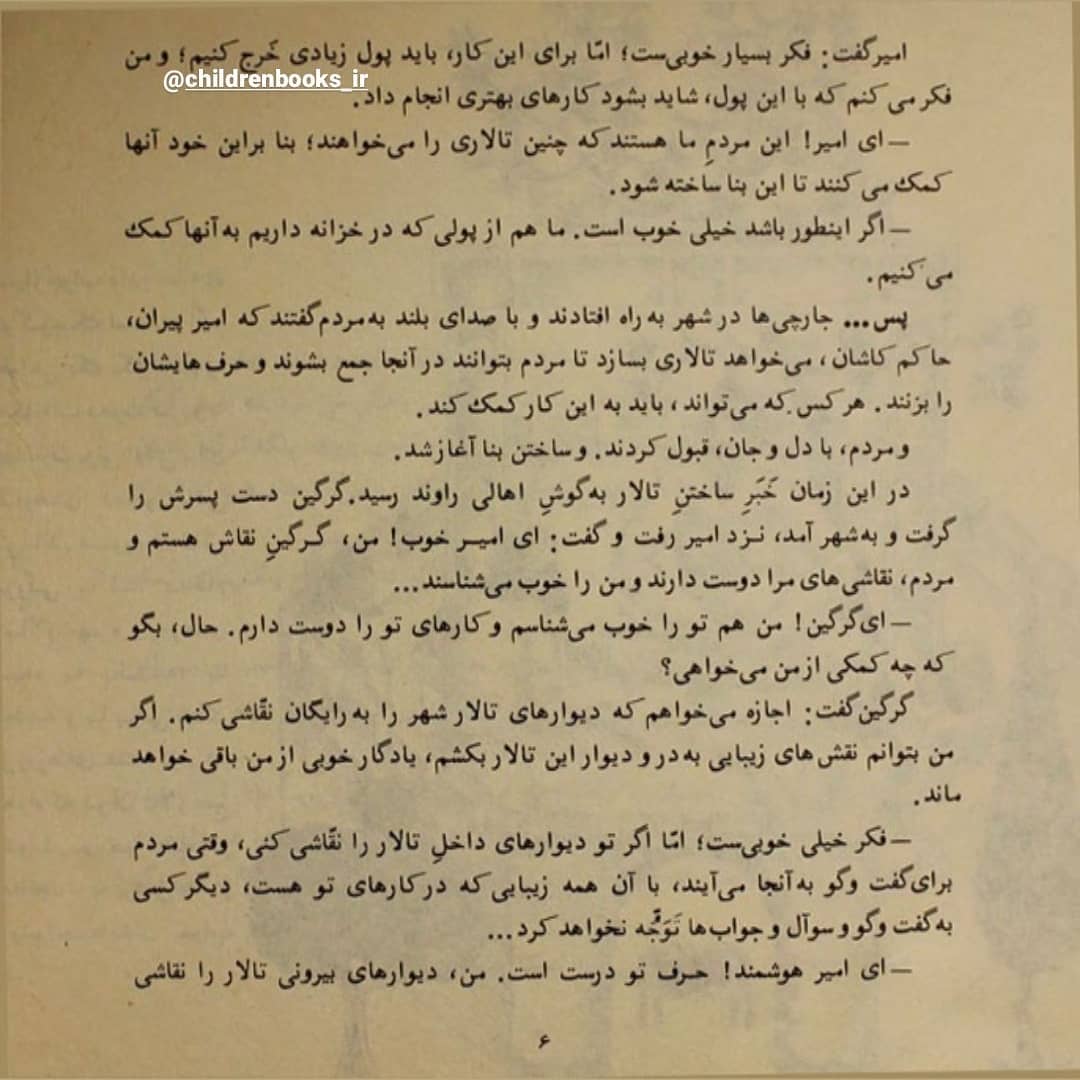 امیرگفت: فکر بسیار خوبی‌ست؛ امّا برای این کار، باید پول زیادی خَرج کنیم؛ و من
@childrenbooks_ir
فکر می‌کنم که با این پول، شاید بشود کارهای بهتری انجام داد.
— ای امیر! این مردمِ ما هستند که چنین تالاری را می‌خواهند؛ بنا براین خود آنها
کمک می‌کنند تا این بنا ساخته شود.
— اگر اینطور باشد خیلی خوب است. ما هم از پولی که در خزانه داریم به آنها کمک
می‌کنیم.
پس... جارچی‌ها در شهر به راه افتادند و با صدای بلند به مردم گفتند که امیر پیران،
حاکم کاشان، می‌خواهد تالاری بسازد تا مردم بتوانند در آنجا جمع بشوند و حرف‌هایشان
را بزنند. هرکس که می‌تواند، باید به این کار کمک کند.
و مردم، با دل و جان، قبول کردند. و ساختن بنا آغاز شد.
در این زمان خَبَرِ ساختنِ تالار به گوشِ اهالی راوند رسید. گرگین دست پسرش را
گرفت و به شهر آمد، نزد امیر رفت و گفت: ای امیر خوب! من، گرگینِ نقاش هستم و
مردم، نقاشی‌های مرا دوست دارند و من را خوب می‌شناسند...
— ای گرگین! من هم تو را خوب می‌شناسم و کارهای تو را دوست دارم. حال، بگو
که چه کمکی از من می‌خواهی؟
گرگین گفت: اجازه می‌خواهم که دیوارهای تالار شهر را به رایگان نقّاشی کنم. اگر
من بتوانم نقش‌های زیبایی به در و دیوار این تالار بکشم، یادگار خوبی از من باقی خواهد
ماند.
— فکر خیلی خوبی‌ست؛ امّا اگر تو دیوارهای داخلِ تالار را نقّاشی کنی، وقتی مردم
برای گفت وگو به آنجا می‌آیند، با آن همه زیبایی که در کارهای تو هست، دیگر کسی
به گفت وگو و سوآل و جواب‌ها تَوَجّه نخواهد کرد...
— ای امیر هوشمند! حرف تو درست است. من، دیوارهای بیرونی تالار را نقاشی
۶